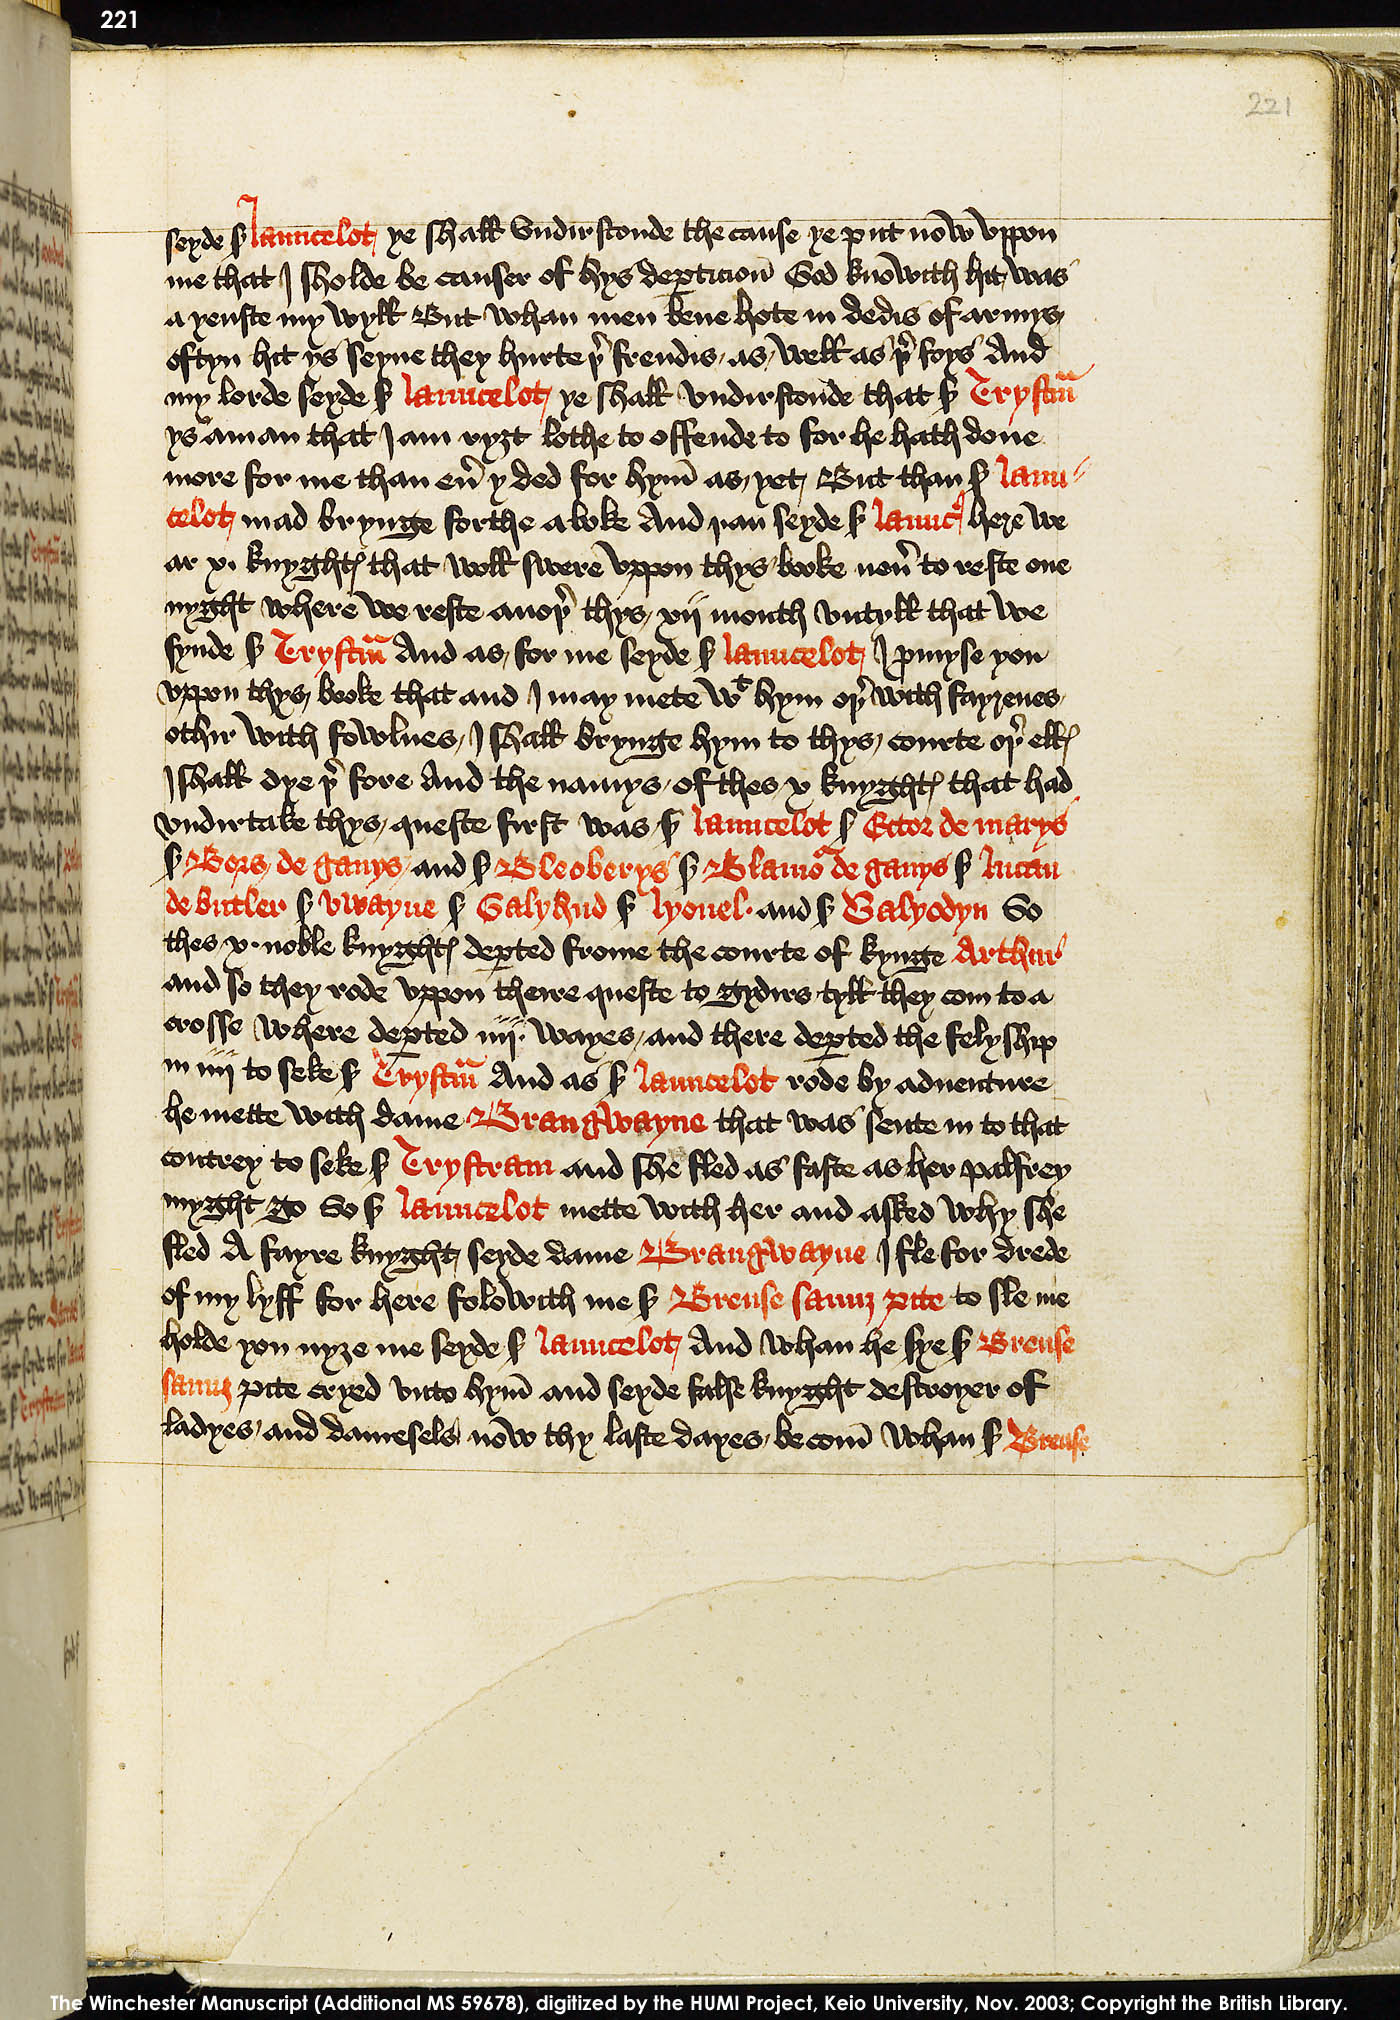 221
221
seyde sˀ launcelot ye shall vndirstonde the cause ye put now vppon
me that I sholde be causer of hys deꝑticioū God knowith hit was
a yenste my wyll But whan men bene hote in dedis of armys
oftyn hit ys seyne they hurte þͬ frendis as well as þͬ foys And
my lorde seyde sˀ launcelot ye shall vndirstonde that sˀ Trystrā
ys a man that I am ryȝt lothe to offende to for he hath done
more for me than euͬ y ded for hym̄ as yet But than sˀ laun-
celot mad brynge forthe a boke And þan seyde sˀ launcꝰ here we
ar x. knyghtꝭ that woll swere vppon thys booke neuͬ to reste one
nyght where we reste anoþͬ thys xii month vntyll that we
fynde sˀ Trystrā And as for me seyde sˀ launcelot I ꝓmyse you
vppon thys booke that and I may mete wᵗ hym oþͬ with fayrenes
othir with fowlnes I shall brynge hym to thys courte oþͬ ellꝭ
I shall dye þͬ fore And the namys of thes x knyghtꝭ that had
vndirtake thys queste first was sˀ launcelot sˀ Ector de marys
sˀ Bors de ganys and sˀ Bleoberys sˀ Blamoͬ de ganys sˀ lucan
de butler sˀ vwayne sˀ Galyhud sˀ lyonel. and sˀ Galyodyn So
thes x. noble knyghtꝭ deꝑted frome the courte of kynge Arthur
and so they rode vppon theire queste to gydirs tyll they com to a
crosse where deꝑted iiii. wayes and there deꝑted the felyship
in iiii to seke sˀ Trystrā And as sˀ launcelot rode by aduenture
he mette with dame Brangwayne that was sente in to that
contrey to seke sˀ Trystram and she fled as faste as her palfrey
myght go So sˀ launcelot mette with her and asked why she
fled A fayre knyght seyde dame Brangwayne I fle for drede
of my lyff for here folowith me sˀ Breuse saunz pite to sle me
holde you nyȝe me seyde sˀ launcelot And whan he sye sˀ Breuse
saunz pite cryed vnto hym̄ and seyde false knyght destroyer of
ladyes and damesels now thy laste dayes be com̄ Whan sˀ Breuse
The Winchester Manuscript (Additional MS 59678), digitized by the HUMI Project, Keio University, Nov. 2003; Copyright the British Library.